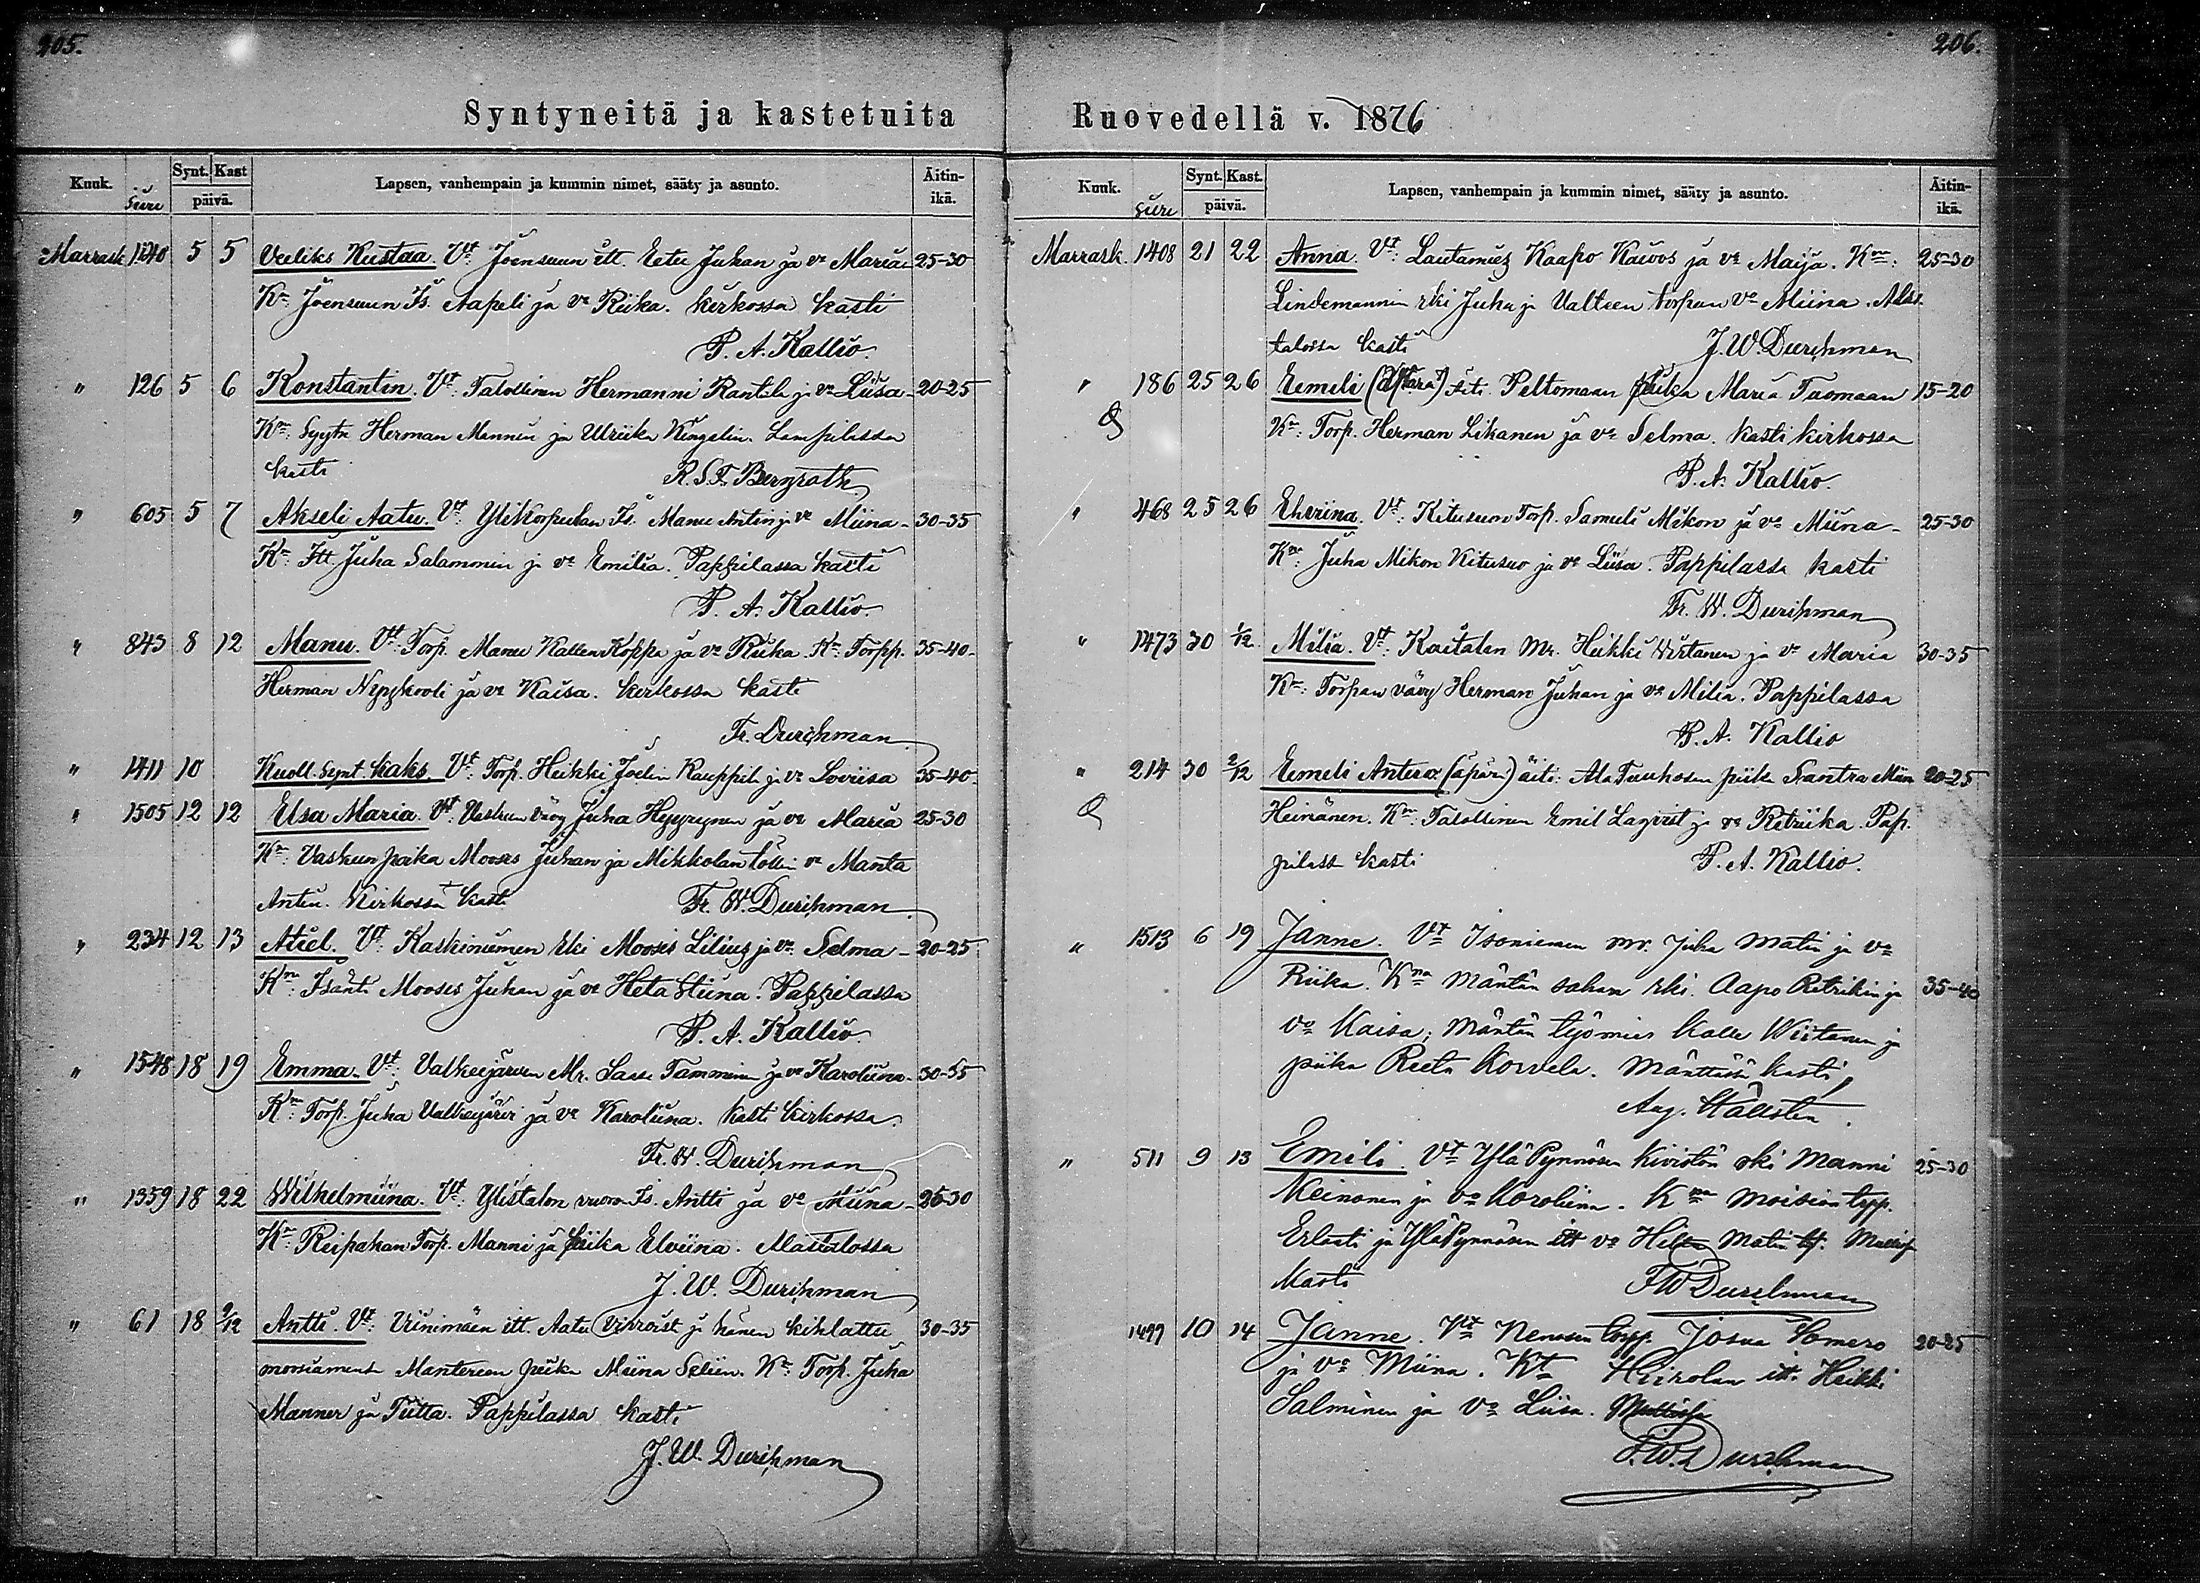 205.
Syntyneitä ja kastetuita
Kuuk. Sivu Synt. Kast päivä. Lapsen, vanhempain ja kummin nimet, sääty ja asunto. Äitin-ikä.
Marrask 1240 5 5 Veeliks Kustaa. Vt: Joensuun itt. Eetu Juhan ja vo Maria 25-30
Kt: Joensuun Is. Aapeli ja vo Riika. kirkossa kasti
P. A. Kallio.
" 126 5 6 Konstantin. Vt: Talollinen Hermanni Rantila ja vo Liisa 20-25
Km: Syytn Herman Mannin ja Ulriika Lampilassa
kasti R.S.F. Bergroth
" 605 5 7 Akseli Aatu. Vt: Ylikorpulan Is. Manu Antinp. vo Miina - 30-35
Km: Itt. Juha Salammin ja vo Emilia. Pappilassa kasti
P. A. Kallio.
" 843 8 12 Manu. Vt: Torp. Manu Kallen Koppa ja vo Riika. Km: Torpp. 35-40-
Herman Nygykooli ja vo Kaisa. kirkossa kasti
Fr. Durchman
" 1411 10 Kuoll. synt. kaks. Vt: Torp. Heikki Joelin Kauppila ja vo Loviisa 35-40
" 1505 12 12 Elsa Maria. Vt: vävy Juha Hyyrynen ja vo Maria 25-30
Km: Vaskun poika Mooses Juhan ja Mikkolan vo Manta
Antin. Kirkossa kasti Fr. W. Durchman
" 234 12 13 Atiel. Vt: Kaskiniemen rki Mooses Lilius ja vo Selma - 20-25
Km: Isäntä Mooses Juhan ja vo Heta Stiina. Pappilassa
P. A. Kallio.
" 1548 18 19 Emma. Vt: Valkeejärven Mr. Sasse Tamminen ja vo Karoliina. 30-35
Km: Torp. Juha Valkeejärvi ja vo Karoliina. kasti kirkossa.
Fr. W. Durchman
" 1359 18 22 Wilhelmiina. Vt: Ylistalon vuora Is. Antti ja vo Miina - 25-30
Km: Reipahan Torp. Manni ja Piika Elviina. Alastalossa
J. W. Durchman
" 61 18 2/12 Antti. Vt: Viinimäen itt. Aatu ja hänen kihlattu 30-35
morsiamensa Mantereen piika Miina Seliin. Km: Torp. Juha
Manner ja Tiitta. Pappilassa kasti
J. W. Durchman
206.
Ruovedellä v. 1876
Kuuk. Sivu Synt. Kast. päivä. Lapsen, vanhempain ja kummin nimet, sääty ja asunto. Äitin-ikä.
Marrask. 1408 21 22 Anna. Vt: Lautamies Kaapo Kaivos ja vo Maija. Km: 25-30
Lindemannin rki Juha ja Valteen torpan vo Miina. Alas-
talossa kasti J. W. Durchman
" 186 25 26 Eemeli (äpärä) äiti. Peltomaan piika Maria Tuomaan 15-20
Km: Torp. Herman Likanen ja vo Selma. kasti kirkossa
P. A. Kallio.
" 468 25 26 Elviina. Vt: Kitusuon Torp. Samuli Mikon ja vo Miina - 25-30
Km: Juha Mikon Kitusuo ja vo Liisa. Pappilassa kasti
Fr. W. Durchman
" 1473 30 1/12 Milia. Vt: Koitalan Mr. Heikki Wirtanen ja vo Maria 30-35
Km: Torpan vävy Herman Juhan ja vo Milia. Pappilassa
P. A. Kallio
" 214 30 2/12 Eemeli Antero (äpärä) äiti: Ala Tuuhosen piika Santra Miina 20-25
Heinänen. Km: Talollinen Emil Lagvist ja vo Retriika. Pap-
pilass kasti P. A. Kallio.
" 1513 6 19 Janne. Vt Isoniemen mr. Juha Matin ja vo
Riika. Kna Mäntän sahan rki. Aapo Retrikin ja 35-40
vo Kaisa; Mäntän työmies Kalle Wirtanen ja
piika Reeta Korvela. Mänttässä kasti,
Aug. Hällsten.
" 511 9 13 Emili. Vt Ylä Pynnösen Kivistön rki Manni 25-30
Keinonen ja vo Karoliina. Kna Moision torp.
Erlanti ja Ylä Pynnösen itt vo Hilta Matin tyt.
kasti F W Durchman
1499 10 14 Janne. Vt Nenosen torpp. Josua Somero 20-25
ja vo Miina. Kt Hiirolan itt. Heikki
Salminen ja vo Liisa.
F. W. Durchman